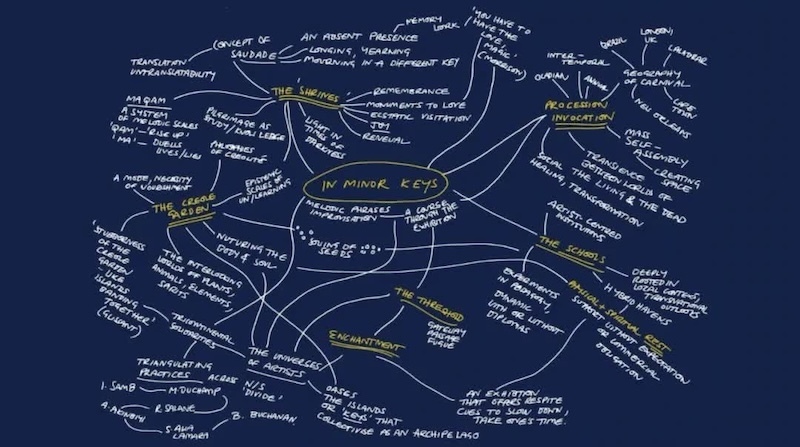 CONCEPT OF
SAUDADE
TRANSLATION
UNTRANSLATABILITY
AN ABSENT PRESENCE
MEMORY
WORK
LONGING, YEARNING
MOURNING IN A DIFFERENT KEY
'YOU HAVE TO
HAVE THE
LOVE
MAKE'
(MORRISON)
THE 'SHRINES'
REMEMBRANCE
MONUMENTS TO LOVE
ECSTATIC VISITATION
JOY
RENEWAL
LIGHT IN
TIMES OF
DARKNESS
PILGRIMAGE AS
STUDY/KNOWLEDGE
MAQAM
A SYSTEM
OF MELODIC SCALES
'QAM' - 'RISE UP'
'MA' -
INTER-
TEMPORAL
BRAZIL
LONDON,
UK
GEOGRAPHY
OF CARNIVAL
CAPE
TOWN
NEW ORLEANS
PROCESSION
INVOCATION
MASS
SELF-
ASSEMBLY
CREATING
SPACE
TRANSIENCE
BETWEEN WORLDS OF
THE LIVING & THE DEAD
SOCIAL
HEALING, TRANSFORMATION
IN MINOR KEYS
MELODIC PHRASES
IMPROVISATION
A COURSE
THROUGH THE
EXHIBITION
OF CREOLITÉ
EPISTEMIC
SCALES OF
UN/LEARNING
A MODE, NECESSITY
OF NOURISHMENT
THE CREOLE
GARDEN
'STUBBORNESS
OF THE
CREOLE
GARDEN
- LIKE
ISLANDS
DANCING
TOGETHER'
(GLISSANT)
THE INTERLOCKING
WORLDS OF PLANTS
ANIMALS, ELEMENTS,
SPIRITS
NUTURING THE
BODY & SOUL
SOWING OF
SEEDS
ARTIST-CENTRED
INSTITUTIONS
THE SCHOOLS
DEEPLY
ROOTED IN
LOCAL CONTEXTS,
TRANSNATIONAL
OUTLOOKS
HYBRID HAVENS
EXPERIMENTS
IN PEDAGOGY,
DYNAMIC
WITH OR WITHOUT
DIPLOMAS
PHYSICAL + SPIRITUAL REST
SUPPORT WITHOUT EXPECTATION
OR COMMERCIAL
OBLIGATION
THE THRESHOLD
GATEWAY
PASSAGE
FUGUE
ENCHANTMENT
TRICONTINENTAL
SOLIDARITIES
TRIANGULATING
PRACTICES
ACROSS
N/S
'DIVIDE'
THE UNIVERSES
OF ARTISTS
I. SAMB
M. DUCHAMP
B. BUCHANAN
OASES
THE ISLANDS
OR 'KEYS' THAT
COLLECTIVISE AS AN ARCHIPELAGO
AN EXHIBITION
THAT OFFERS RESPITE
CUES TO SLOW DOWN,
TAKE ONE'S TIME.